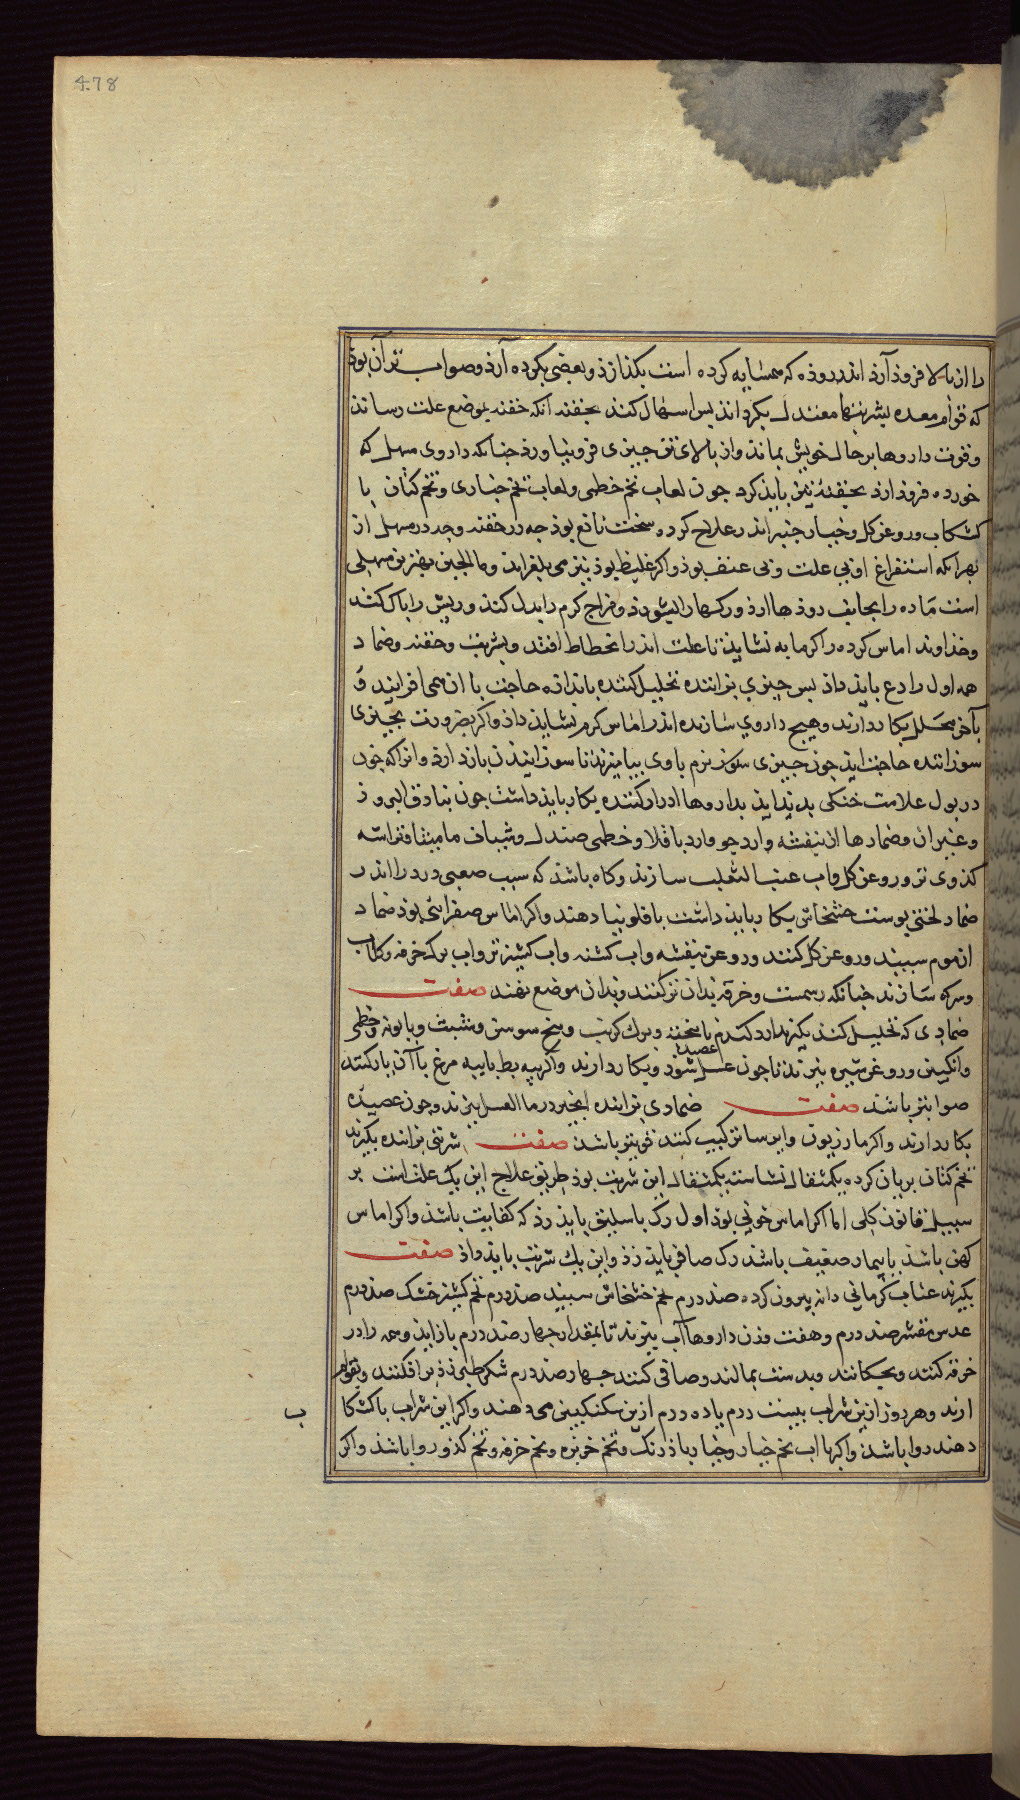 478
را از بالا فروذ آرذ اندر روذه که همسایه کرده است بکذارذ و بعضی بکرده آرذ و صواب تر آن بوذ
که قوام معده بشربتها معتدل بکردانذ بس اسهال کنذ بحقنه آنکه حقنه بموضع علت رسانذ
وقوت داروها برحال خویش بمانذ واز بالای تن جیزی فرو نیاورذ جنانکه داروی مسهل که
خورده فروذ ارذ بحقنه نیز بایذ کرد جون لعاب تخم خطمی ولعاب تخم خیاری وتخم کتان با
کشکاب وروغن کل وخیار جنبر اندر علاج کرده سخت نافع بوذ جه در حقنه وجه در مسهل از
بهر انکه استفراغ او بی علت وبی عنف بوذ واکر غلیظ بوذ نیز می بلغزاند وما الجبن بهترین مسهلی
است ماده را بجانب روذها ارذ ورکها را بشویذ ومزاج کرم را بدل کنذ وریش را باک کنذ
وخذاوند اماس کرده را کرمابه نشایذ تا علت اندر انحطاط افتد وبشربت وحقنه وضماد
همه اول رادع بایذ داذ بس جیزی براننده تحلیل کننده باندازه حاجت با ان همی افزایند و
بآخر محلل بکار دارند وهیج داروی سازنده اندر اماس کرم نشایذ داذ واکر بضرورت بجیزی
سوزاننده حاجت ایذ جون جیزی سکون نرم با وی بیامیزند تا سوزانیدن باز دارذ وانرا که جون
در بول علامت خنکی بدید ایذ بداروها ادرار کننده بکار بایذ داشت جون بنادق البزور
وغیر ان وضمادها از بنفشه وارد جو وارد باقلا وخطمی صندل وشیاف مامیثا وتراشه
کذوی تر وروغن کل واب عنب الثعلب سازند وکاه باشذ که سبب صعبی درد را اندر
ضماد لختی بوست خشخاش بکار بایذ داشت یا قلونیا دهند واکر اماس صفرائی بوذ ضماد
از موم سبید وروغن کل کنند وروغن بنفشه واب کسنه واب کشنیز تر واب برک خرفه وکلاب
وسرکه سازند جنانکه رسمست وخرقه بدان تر کنند وبدان موضع نهند صفت
ضمادی که تحلیل کند بکیرند ارد کندم با بخته وبرک کرنب وبیخ سوسن وشبت وبابونه وخطمی
وانکبین وروغن شیره بپزند تا جون عسل شوذ وبکار دارند واکر بیه بط یا بیه مرغ با آن یار کنند
عصیده
صوابتر باشذ صفت ضمادی براننده انجیر در ما العسل بپزند وجون عصیده
بکار دارند واکر مازریون وایرسا ترکیب کنند قویتر باشذ صفت شربتی براننده بکیرند
تخم کتان بریان کرده یکمثقال نشاسته یکمثقال این شربت بوذ طریق علاج این یک علت است بر
سبیل قانون کلی اما اکر اماس خونی بوذ اول رک باسلیق بایذ زذ که کفایت باشذ واکر اماس
کهن باشذ یا بیمار ضعیف باشذ رک صافی بایذ زذ واین یک شربت بایذ داذ صفت
بکیرند عناب کرمانی دانه بیرون کرده صد درم تخم خشخاش سبید صد درم تخم کشنیز خشک صد درم
عدس مقشر صد درم وهفت وزن داروها آب بپزند تا بمقدار جهار صد درم باز ایذ وهمه را در
خرقه کنند وبجکانند وبدست بمالند وصافی کنند جهار صد درم شکر طبرزذ بر افکنند وبقوام
ارند وهر روز ازین شراب بیست درم با ده درم ازین سکنکبین می دهند واکر این شراب با کشکاب
دهند روا باشذ واکر با اب تخم خیار وخیار باذرنک وتخم خربزه وتخم خرفه وتخم کذو روا باشذ واکر